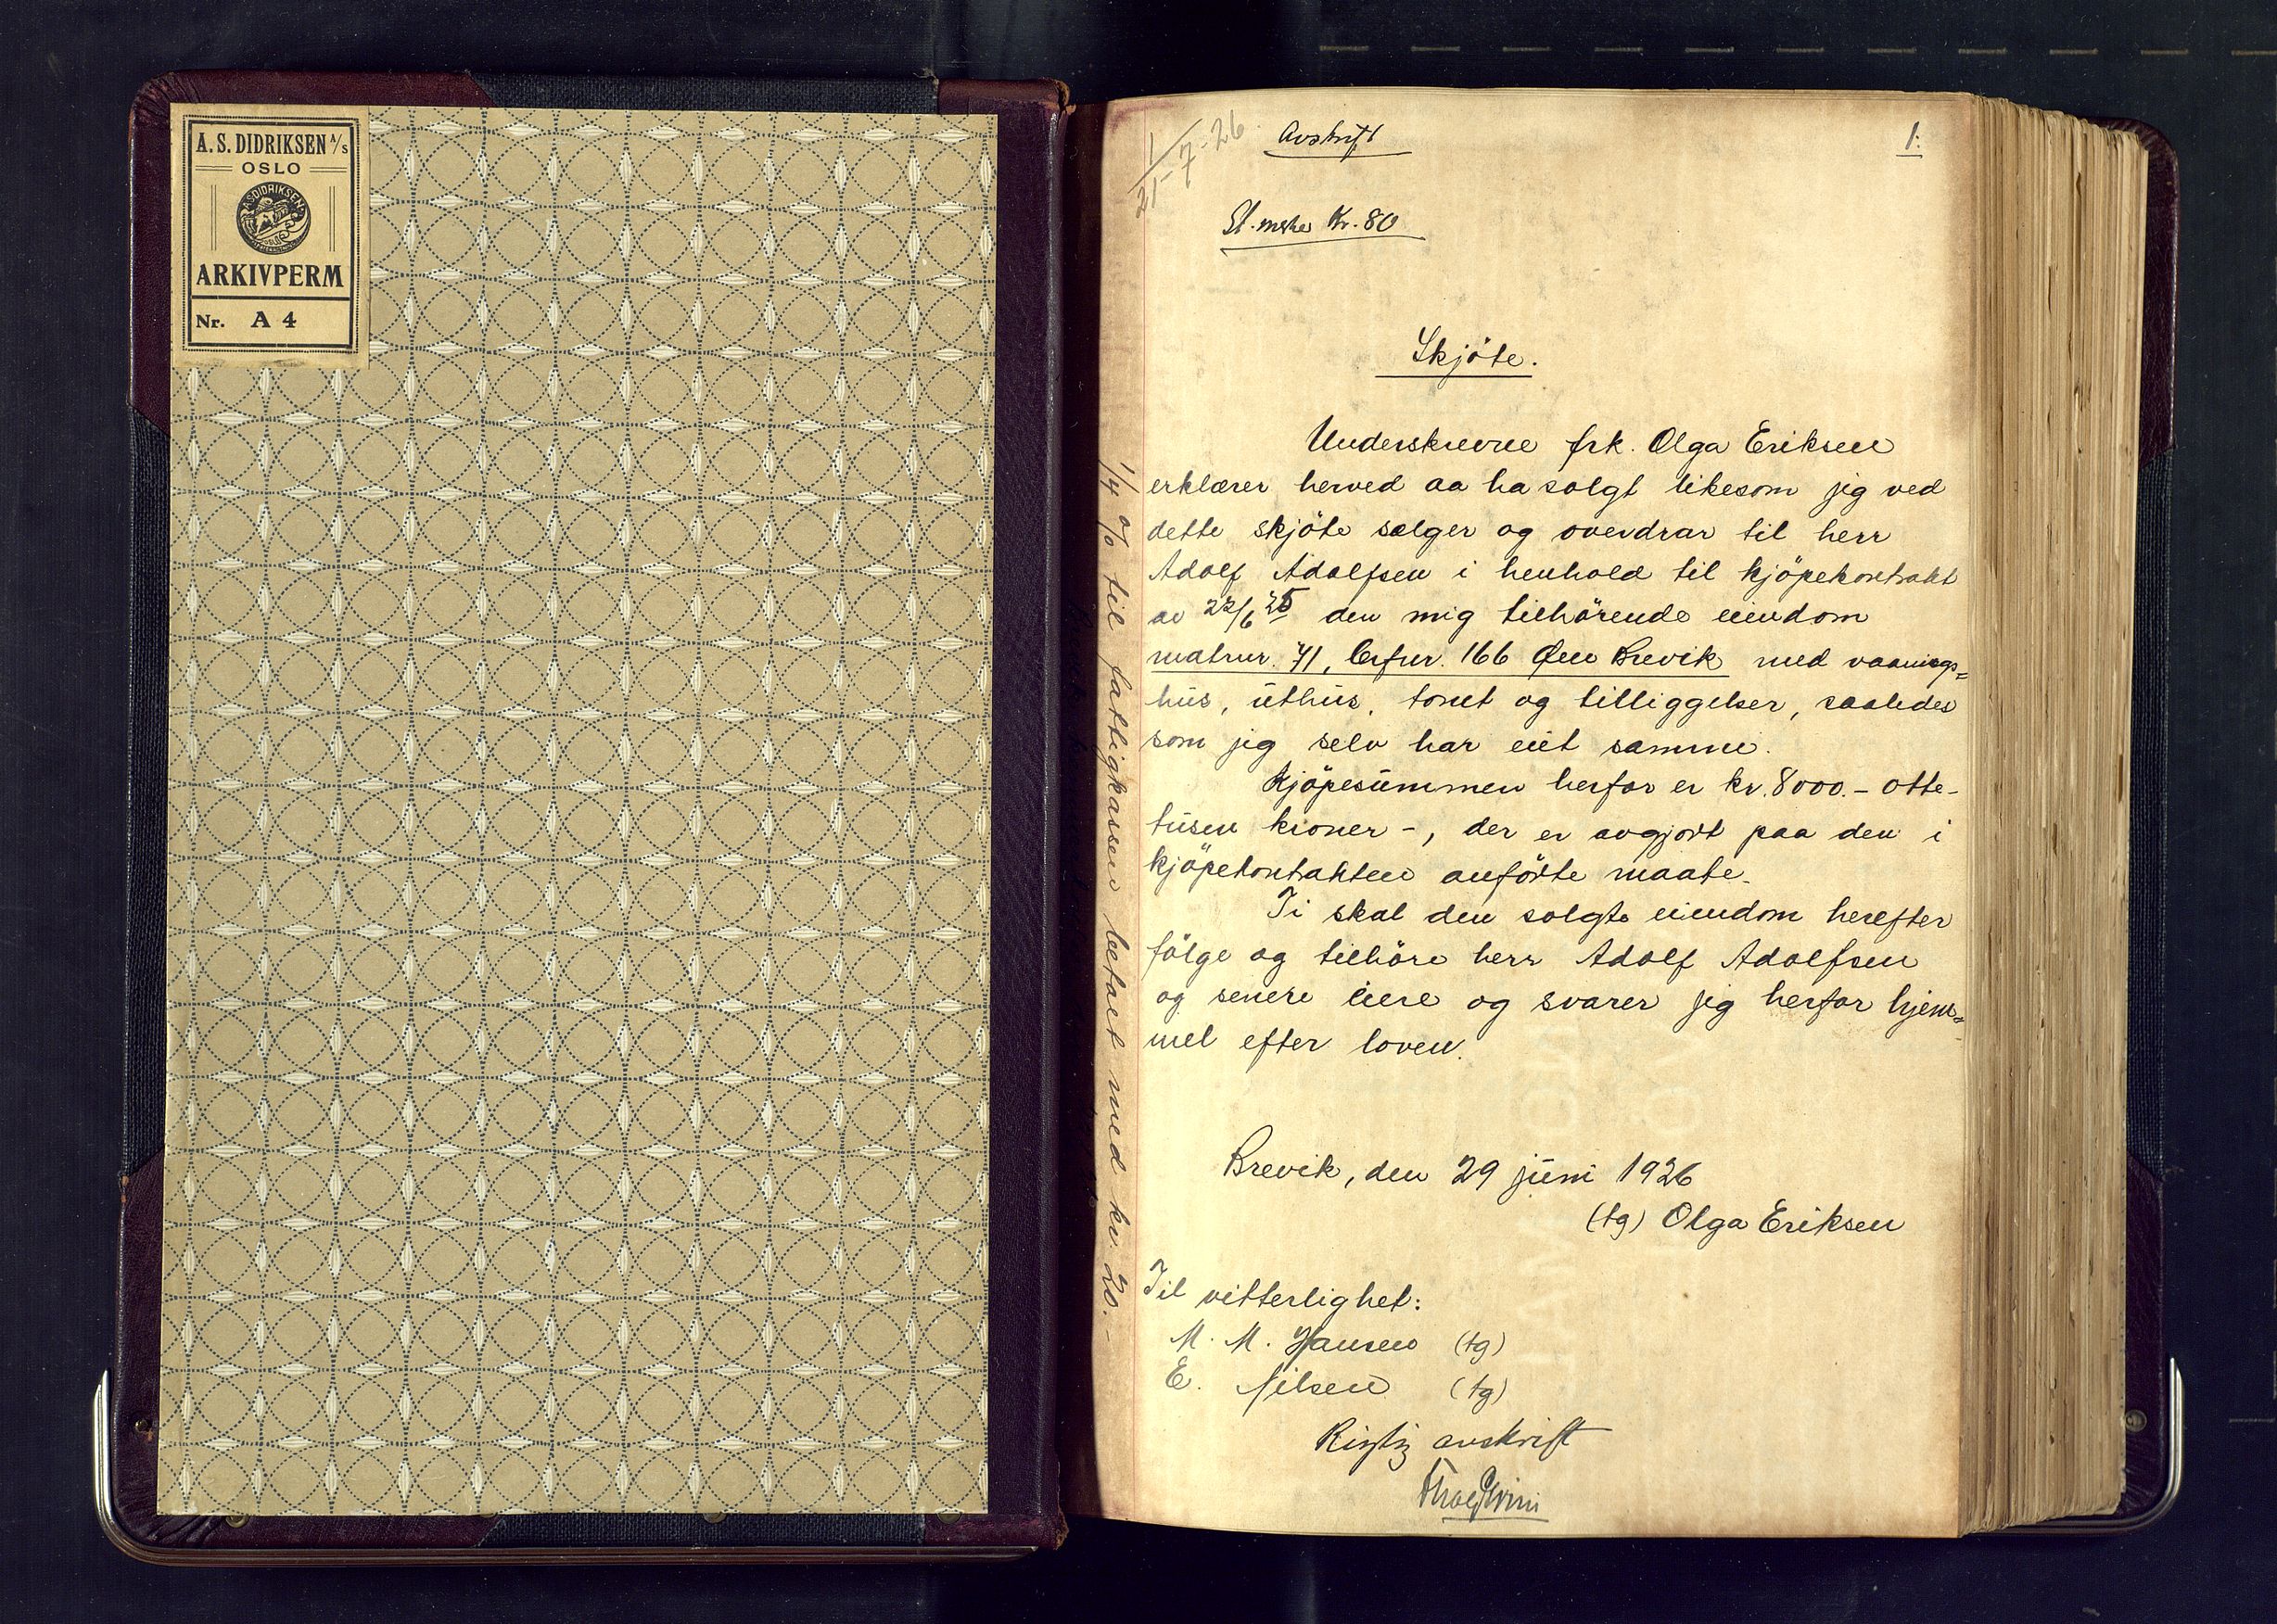 A. S. DIDRIKSEN A/S
OSLO
A.S. DIDRIKSEN A/S
ARKIVPERM
Nr. A 4
1/21-7-26
Avskrift
1.
St. merke Kr. 80
Skjöte.
Underskrevne frk. Olga Eriksen
erklærer herved aa ha solgt likesom jeg ved
dette skjöte sælger og overdrar til herr
Adolf Adolfsen i henhold til kjöpekontrakt
av 22/6 25 den mig tilhörende eiendom
matrnr. 71, brfnr. 166 Øen Brevik med vaanings=
hus, uthus, tomt og tilliggelser, saaledes
som jeg selv har eiet samme.
Kjöpesummen herfor er kr. 8000.- otte-
tusen kroner -, der er avgjort paa den i
kjöpekontrakten anförte maate.
Ti skal den solgte eiendom herefter
fölge og tilhöre herr Adolf Adolfsen
og senere eiere og svarer jeg herfor hjem=
mel efter loven.
Brevik, den 29 juni 1926
(tg) Olga Eriksen
Til vitterlighet:
M. M. Hansen (tg)
E. Nilsen (tg)
Rigtig avskrift
1/4 % til fattigkassen betalt med kr. 20.-